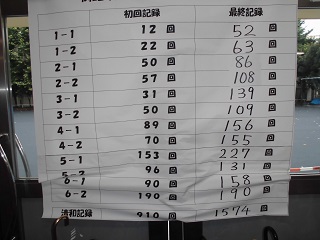 初回記録 最終記録
1-1 12回 52回
1-2 22回 63回
2-1 50回 86回
2-2 57回 108回
3-1 31回 139回
3-2 50回 109回
4-1 89回 156回
4-2 70回 155回
5-1 153回 227回
5-2 96回 131回
6-1 90回 158回
6-2 190回 190回
記録 910回 1574回